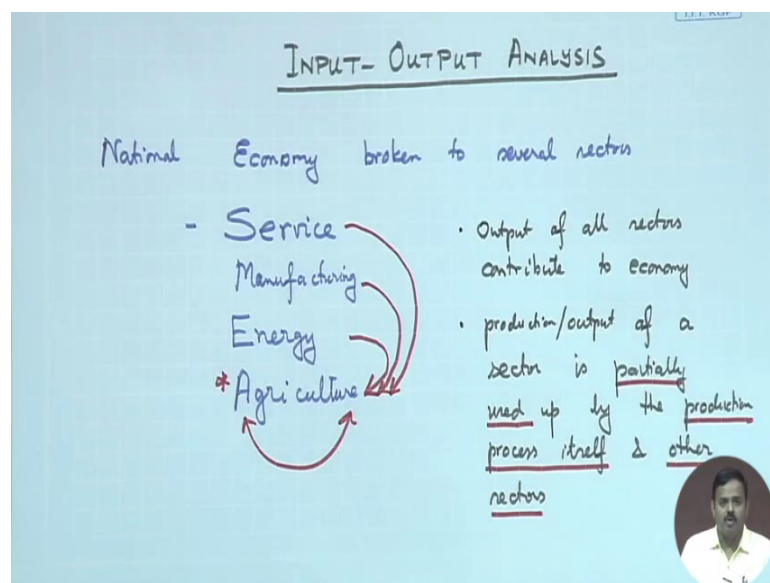 I.I.T. KGP
INPUT- OUTPUT ANALYSIS
National Economy broken to several sectors
- Service
Manufacturing
Energy
* Agriculture
• Output of all sectors
contribute to economy
• production/output of a
sector is partially
used up by the production
process itself & other
sectors